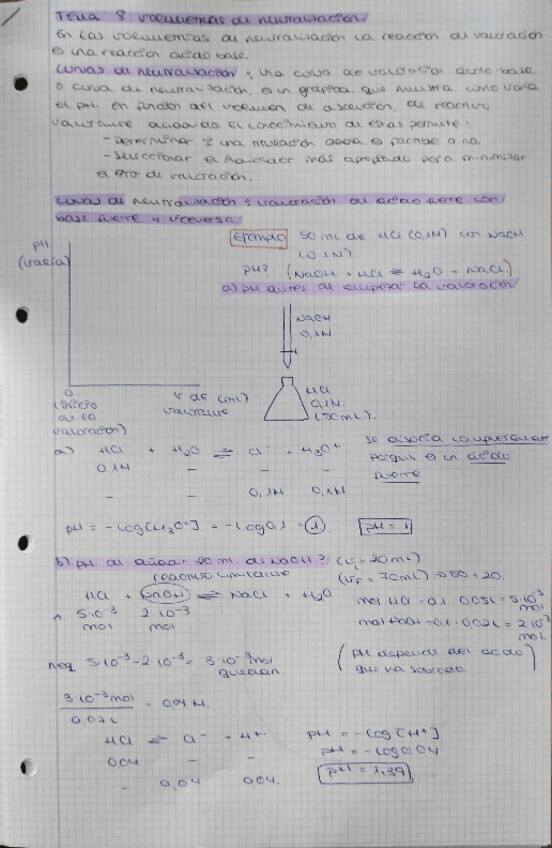 Tema 8: volumetrías de neutralización
En las volumetrías de neutralización la reacción de valoración
es una reacción ácido base.
Curvas de neutralización: una curva de valoración ácido base
o curva de neutralización, es un gráfica que muestra como varía
el pH en función del volumen de disolución de reactivo
valorante añadido. El conocimiento de estas permite:
- Determinar si una valoración dada es factible o no.
- Seleccionar el indicador más apropiado para minimizar
el error de valoración.
Curvas de neutralización: valoración de ácido fuerte con
base fuerte y viceversa
Ejemplo 50 ml de HCl (0,1N) con NaOH
(0,1N).
pH? (NaOH + HCl ⇌ H2O + NaCl)
a) pH antes de empezar la valoración
pH
(varía)
NaOH
0,1N
HCl
0,1N.
(50mL).
0
V de (mL)
valorante
(inicio
de la
valoración)
a) HCl + H2O ⇌ Cl⁻ + H3O⁺
0,1N - - -
- - 0,1N 0,1N
se disocia completamente
porque es un ácido
fuerte
pH = -log[H3O⁺] = -log0,1 = 1 pH = 1
b) pH al añadir 20 ml de NaOH? (Vi = 20mL)
reactivo limitante (VF = 70mL) ⇒ 50 + 20.
HCl + NaOH ⇌ NaCl + H2O
n 5·10⁻³ mol 2·10⁻³ mol
mol HCl = 0,1 · 0,05L = 5·10⁻³ mol
mol NaOH = 0,1 · 0,02L = 2·10⁻³ mol.
neq 5·10⁻³ - 2·10⁻³ = 3·10⁻³ mol
quedan
(pH depende del ácido
que ha sobrado)
3·10⁻³ mol
0,07L
= 0,04 N.
HCl ⇌ Cl⁻ + H⁺
0,04 - -
- 0,04 0,04
pH = -log[H⁺]
pH = -log0,04
pH = 1,39